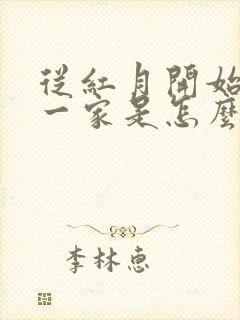 從紅月開始
一家是怎麼
李林惠